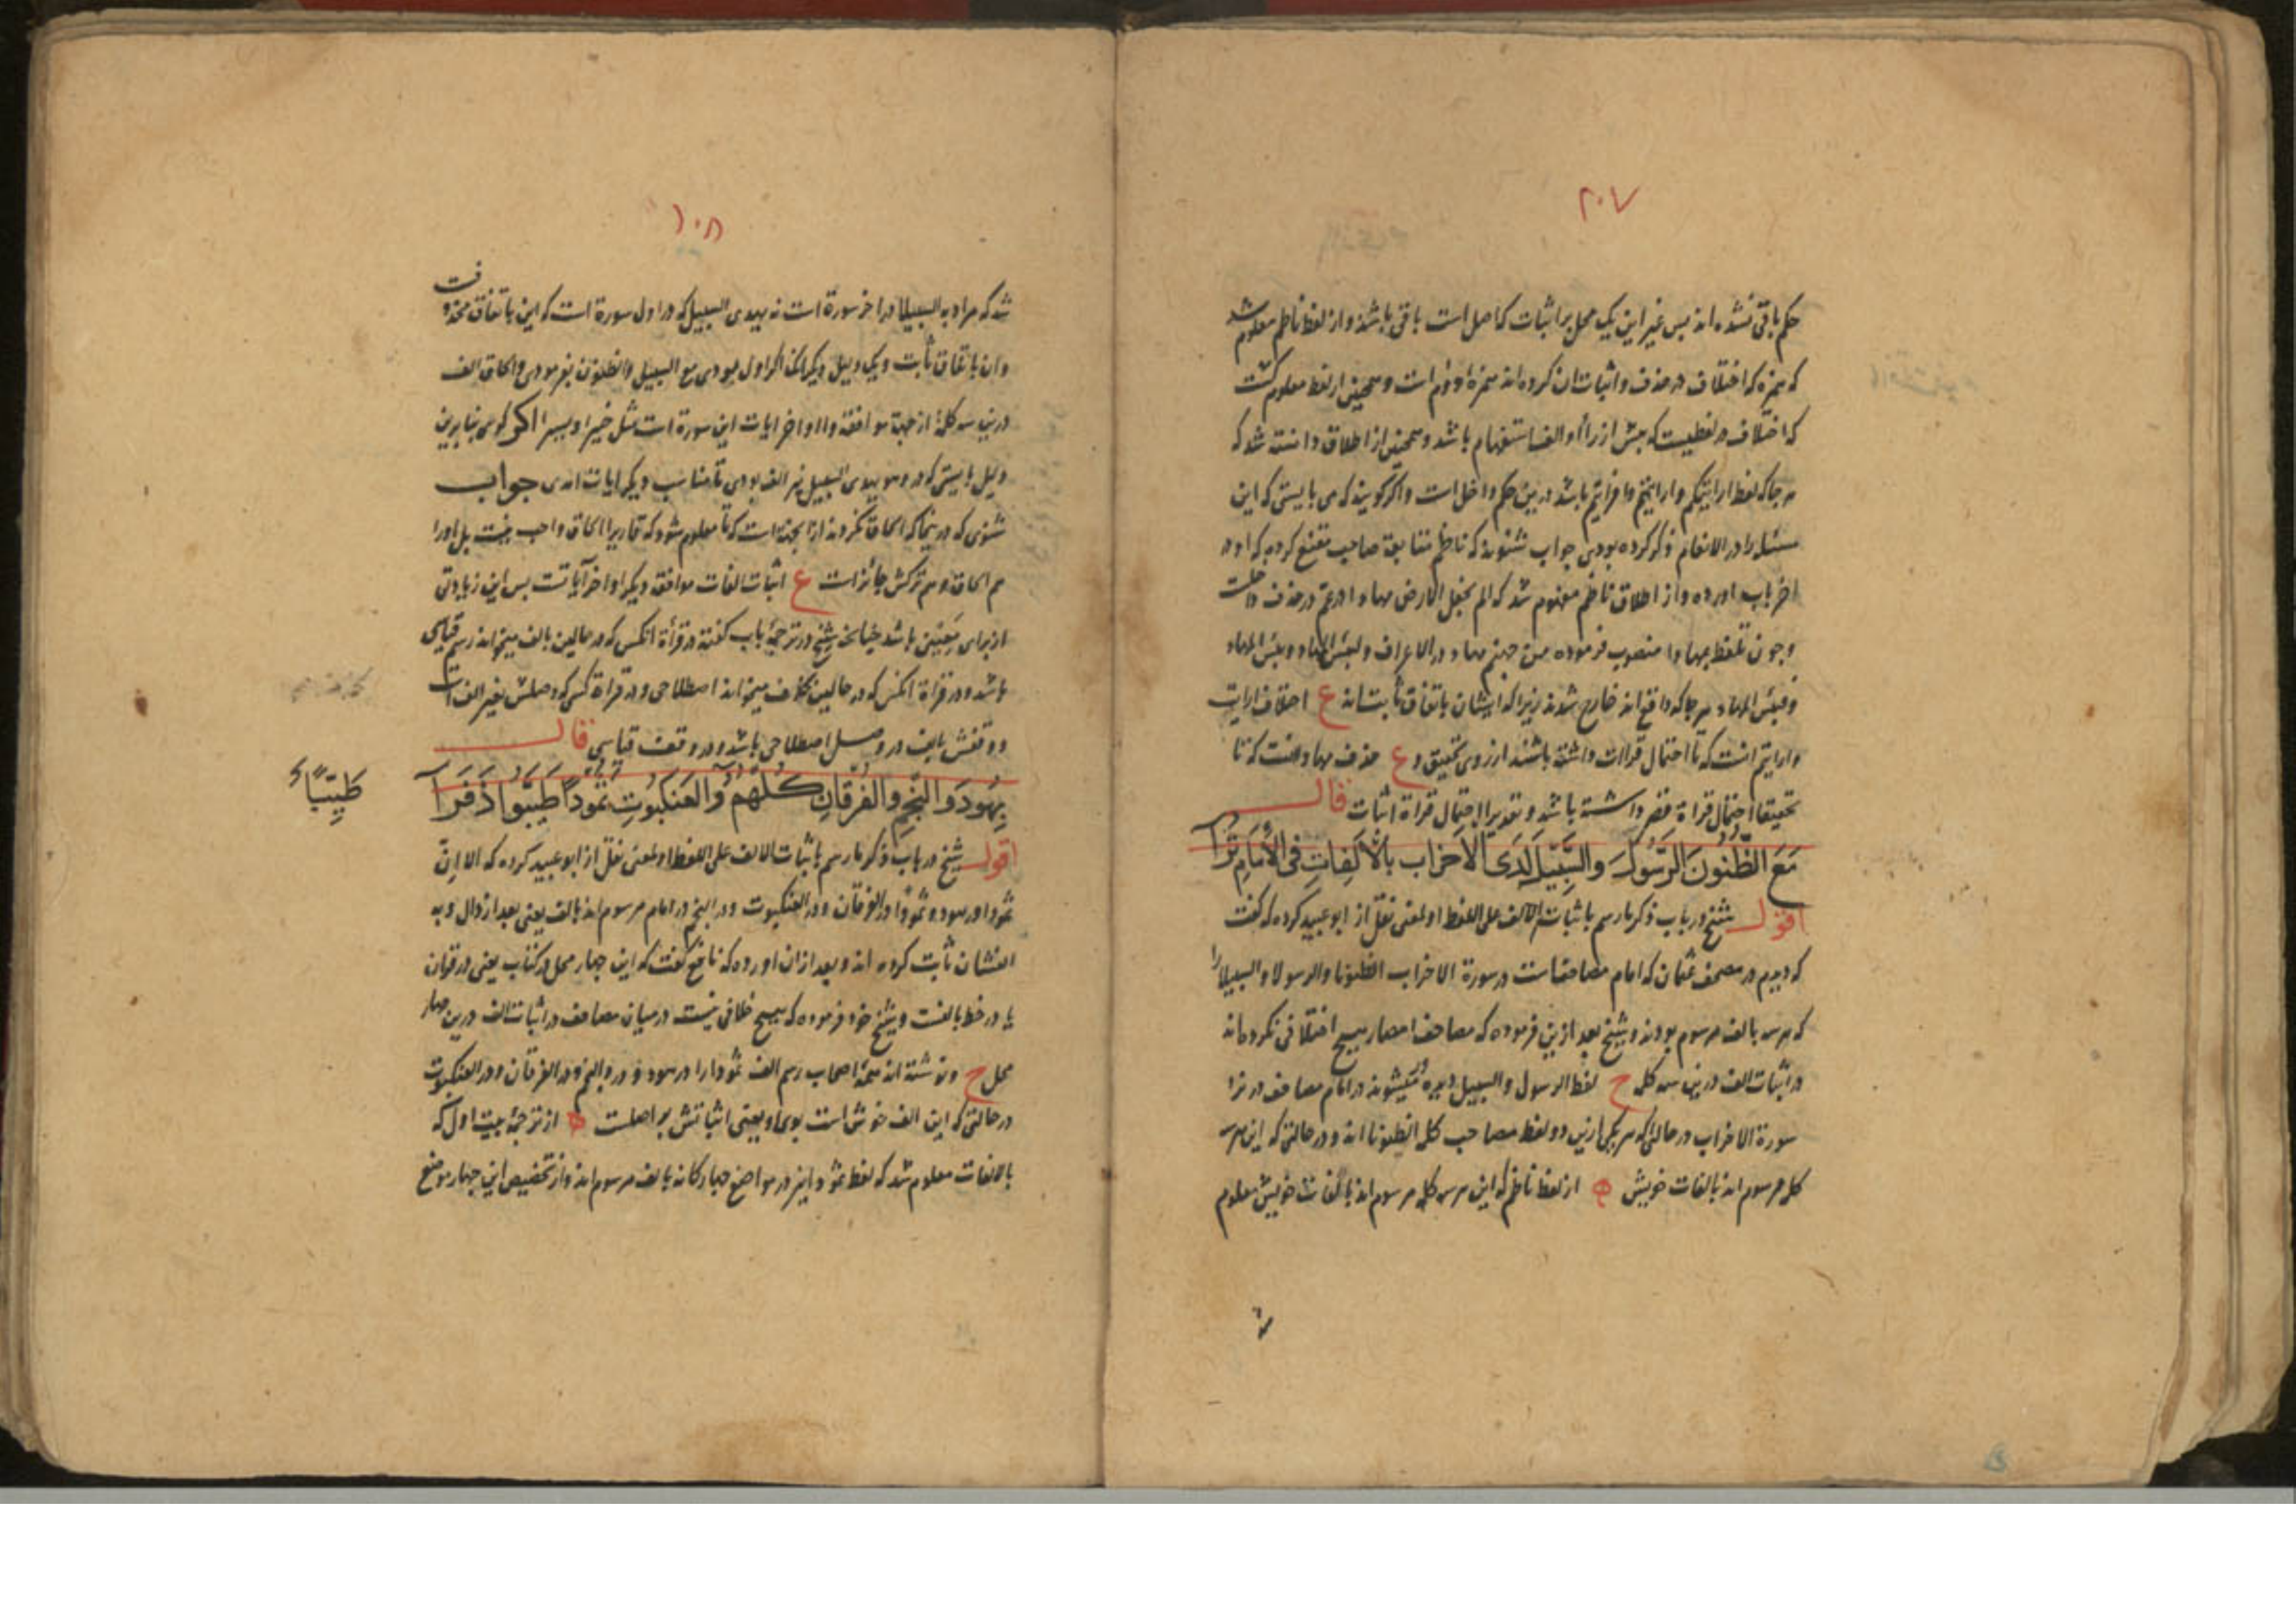 ٢٠٧
حکم باقی نشده اند بس غیر این یک محل بر اثبات که اصل است باقی باشد و از لفظ ناظم معلوم شد
که همزه که اختلاف در حذف و اثبات ان کرده اند همزه دوم است و همچنین از لفظ معلوم کشت
که اختلاف در لفظیست که بیش از را او الف استفهام باشد و همچنین از اطلاق دانسته شد که
هر جا که لفظ ارایتکم و ارایتم و افرایتم باشد درین حکم داخل است و اکر کویند که می بایستی که این
مسئله را در الانعام ذکر کرده بودی جواب شنوند که ناظم متابعة صاحب مقنع کرده که او در
اخر باب اورده و از اطلاق ناظم مفهوم شد که الم نجعل الارض مهادا در عم در حذف داخلست
و جون تلفظ بمهادا منصوب فرموده من جهنم مهاد در الاعراف و لبئس المهاد و بئس المهاد
و فبئس المهاد هر جا که واقع اند خارج شدند زیرا که ایشان باتفاق ثابت اند ع اختلاف ارایت
و ارایتم انست که تا احتمال قراات داشته باشند از روی تحقیق و ع حذف مهادا انست که تا
تحقیقا احتمال قراة قصر داشته باشد و تقدیرا احتمال قراة اثبات قال
مَعَ الظُّنُونَ الرَّسُولَ وَالسَّبِيلَ لَدَى الْأَحْزَابِ بِالْأَلِفَاتِ فِي الْإِمَامِ تُرَا
اقول شیخ در باب ذکر ما رسم باثبات الالف علی اللفظ او لمعنی نقل از ابو عبید کرده که کفت
که دیدم در مصحف عثمان که امام مصاحفست در سورة الاحزاب الظنونا و الرسولا و السبیلا را
که هرسه بالف مرسوم بودند و شیخ بعد ازین فرموده که مصاحف امصار هیچ اختلافی نکرده اند
در اثبات الف درین سه کلمه ح لفظ الرسول و السبیل دیده میشوند در امام مصاحف در نزد
سورة الاحزاب در حالتی که هر یکی ازین دو لفظ مصاحب کلمه الظنونا اند و در حالتی که این هرسه
کلمه مرسوم اند بالفات خویش از لفظ ناظم که این هرسه کلمه مرسوم اند بالفات خویش معلوم
١٠٨
شد که مراد به السبیلا در اخر سورة است نه یهدی السبیل که در اول سورة است که این باتفاق محذوفست
و ان باتفاق ثابت و یک دلیل دیکر انکه اکر اول بودی مع السبیل و الظنون بفرمودی و الحاق الف
درین سه کلمه از جهة موافقة و او اخر ایات این سورة است مثل خبیرا و یسیرا اکر کوی بنابرین
دلیل بایستی که در وهو یهدی السبیل نیز الف بودی تا مناسب دیکر ایات امدی جواب
شنوی که در ینجا که الحاق نکردند از انجهة است که تا معلوم شود که قاری را الحاق واجب نیست بل او را
هم الحاق و هم ترکش جائز است ع اثبات الفات موافقه دیکر اواخر آیاتست بس این زیادتی
از برای تعیین باشد جنانکه شیخ در ترجمهٔ باب کفته در قرأة انکس که در حالین بالف میخواند رسم قیاسی
باشد و در قرأة انکس که در حالین بحذف میخواند اصطلاحی و در قراة کسی که وصلش بغیر الف است
و وقفش بالف در وصل اصطلاحی باشد و در وقف قیاسی قال
بِهُودَ وَالنَّجْمِ وَالْفُرْقَانِ كُلِّهُمُ وَالْعَنْكَبُوتِ ثَمُودًا طَيَّبُوا ذَفَرَا
طَیِّبًا
اقول شیخ در باب ذکر ما رسم باثبات الالف علی اللفظ او لمعنی نقل از ابو عبید کرده که الا ان
ثمودا در هود و ثمودا در الفرقان و در العنکبوت و در النجم در امام مرسوم اند بالف یعنی بعد از دال و به
الفشان ثابت کرده اند و بعد از ان اورده که نافع کفت که این جهار محل در کتاب یعنی در قران
یا در خط بالفست و شیخ خود فرموده که هیچ خلافی نیست در میان مصاحف در اثبات الف درین جهار
محل ح و نوشته اند همهٔ اصحاب رسم الف ثمودا را در هود و در و النجم و در الفرقان و در العنکبوت
در حالتی که این الف خوش است بوی او یعنی اثباتش بر اصلست از ترجمهٔ بیت اول که
بالالفات معلوم شد که لفظ ثمودا نیز در مواضع جهارکانه بالف مرسوم اند و از تخصیص این جهار موضع